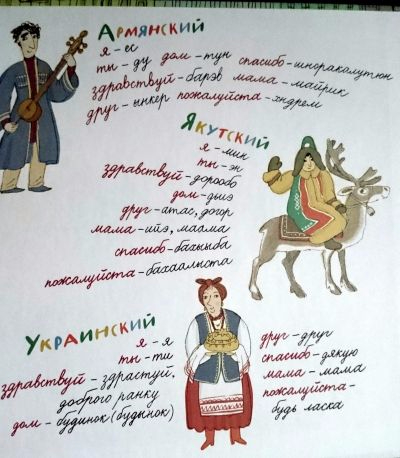 Армянский
я – ес
ты – ду дом – тун спасибо – шноракалутюн
здравствуй – барэв мама – майрик
друг – ынкер пожалуйста – хндрем
Якутский
я – мин
ты – эн
здравствуй – дорообо
дом – дьиэ
друг – атас, доҕор
мама – ийэ, маама
спасибо – баһыыба
пожалуйста – баһаалыста
Украинский
я – я
ты – ти
здравствуй – здрастуй,
доброго ранку
дом – будинок (будынок)
друг – друг
спасибо – дякую
мама – мама
пожалуйста –
будь ласка